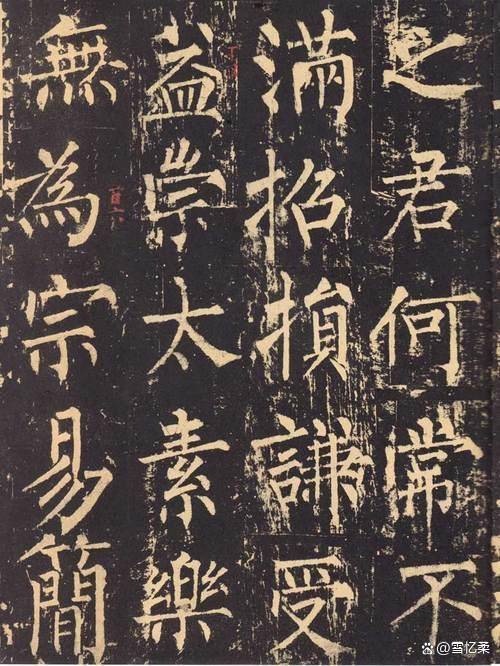 之君何常不
满招损謙受
益崇太素樂
無為宗易簡
百六
@雪忆柔